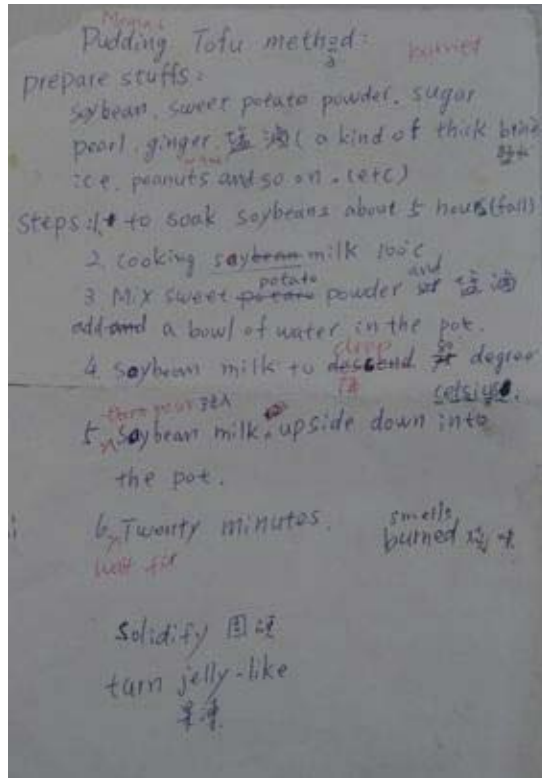 Pudding Tofu method:
burned
prepare stuffs:
soybean, sweet potato powder, sugar
pearl, ginger, 盐滷 ( a kind of thick brine
ice, peanuts and so on. (etc)
Steps: 1. to soak soybeans about 5 hours (fall)
2. cooking soybean milk 100°C
3. Mix sweet potato powder and 盐滷
add and a bowl of water in the pot.
4. soybean milk to descend drop degree
celsius.
5. then pour soybean milk upside down into
the pot.
6. Twenty minutes.
wait for
smells
burned
Solidify
turn jelly-like
果凍